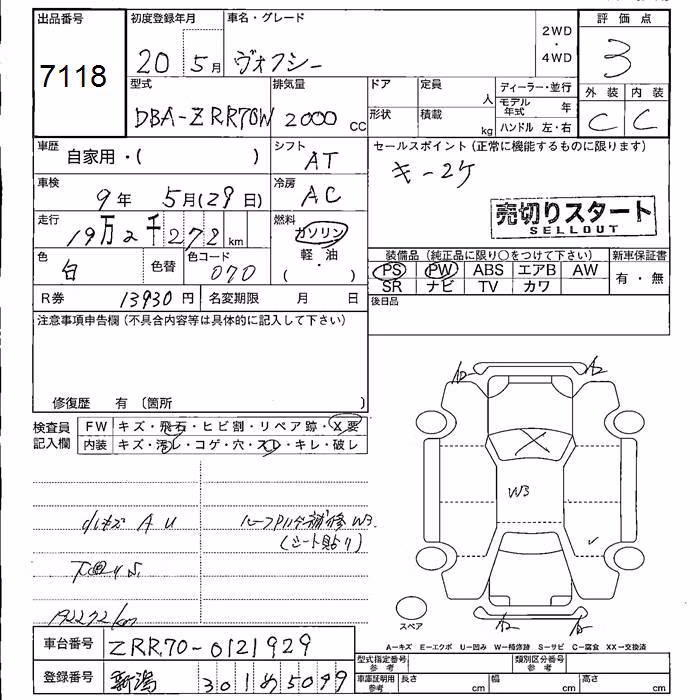 出品番号 初度登録年月 車名・グレード 2WD・4WD 評価点
7118 20 5月 ヴォクシー 3
型式 排気量 ドア 定員 人 ディーラー・並行 外装 内装
DBA-ZRR70W 2000 cc 形状 積載 kg モデル年式 年 C C
ハンドル 左・右
車歴 自家用・( ) シフト AT セールスポイント(正常に機能するものに限ります)
キー2ケ
車検 9年 5月(29日) 冷房 AC
売切りスタート
SELLOUT
走行 19万2千272km 燃料 ガソリン 軽油
・
( )
色 白 色替 色コード 070
装備品(純正品に限り○をつけて下さい) 新車保証書
PS PW ABS エアB AW 有・無
SR ナビ TV カワ
R券 13930円 名変期限 月 日 後日品
注意事項申告欄(不具合内容等は具体的に記入して下さい)
修復歴 有 〔箇所 〕
検査員記入欄 FW キズ・飛石・ヒビ割・リペア跡・X要
内装 キズ・汚レ・コゲ・穴・スレ・キレ・破レ
A2 A2
W3
小キズ AU
W3.
(シート貼り)
192272km
A2 A2
スペア
A-キズ E-エクボ U-凹み W-補修跡 S-サビ C-腐食 XX-交換済
車台番号 ZRR70-0121929
型式指定番号 参考 類別区分番号 参考
登録番号 新潟 301 め 5099
車庫証明用 参考 長さ cm 幅 cm 高さ cm